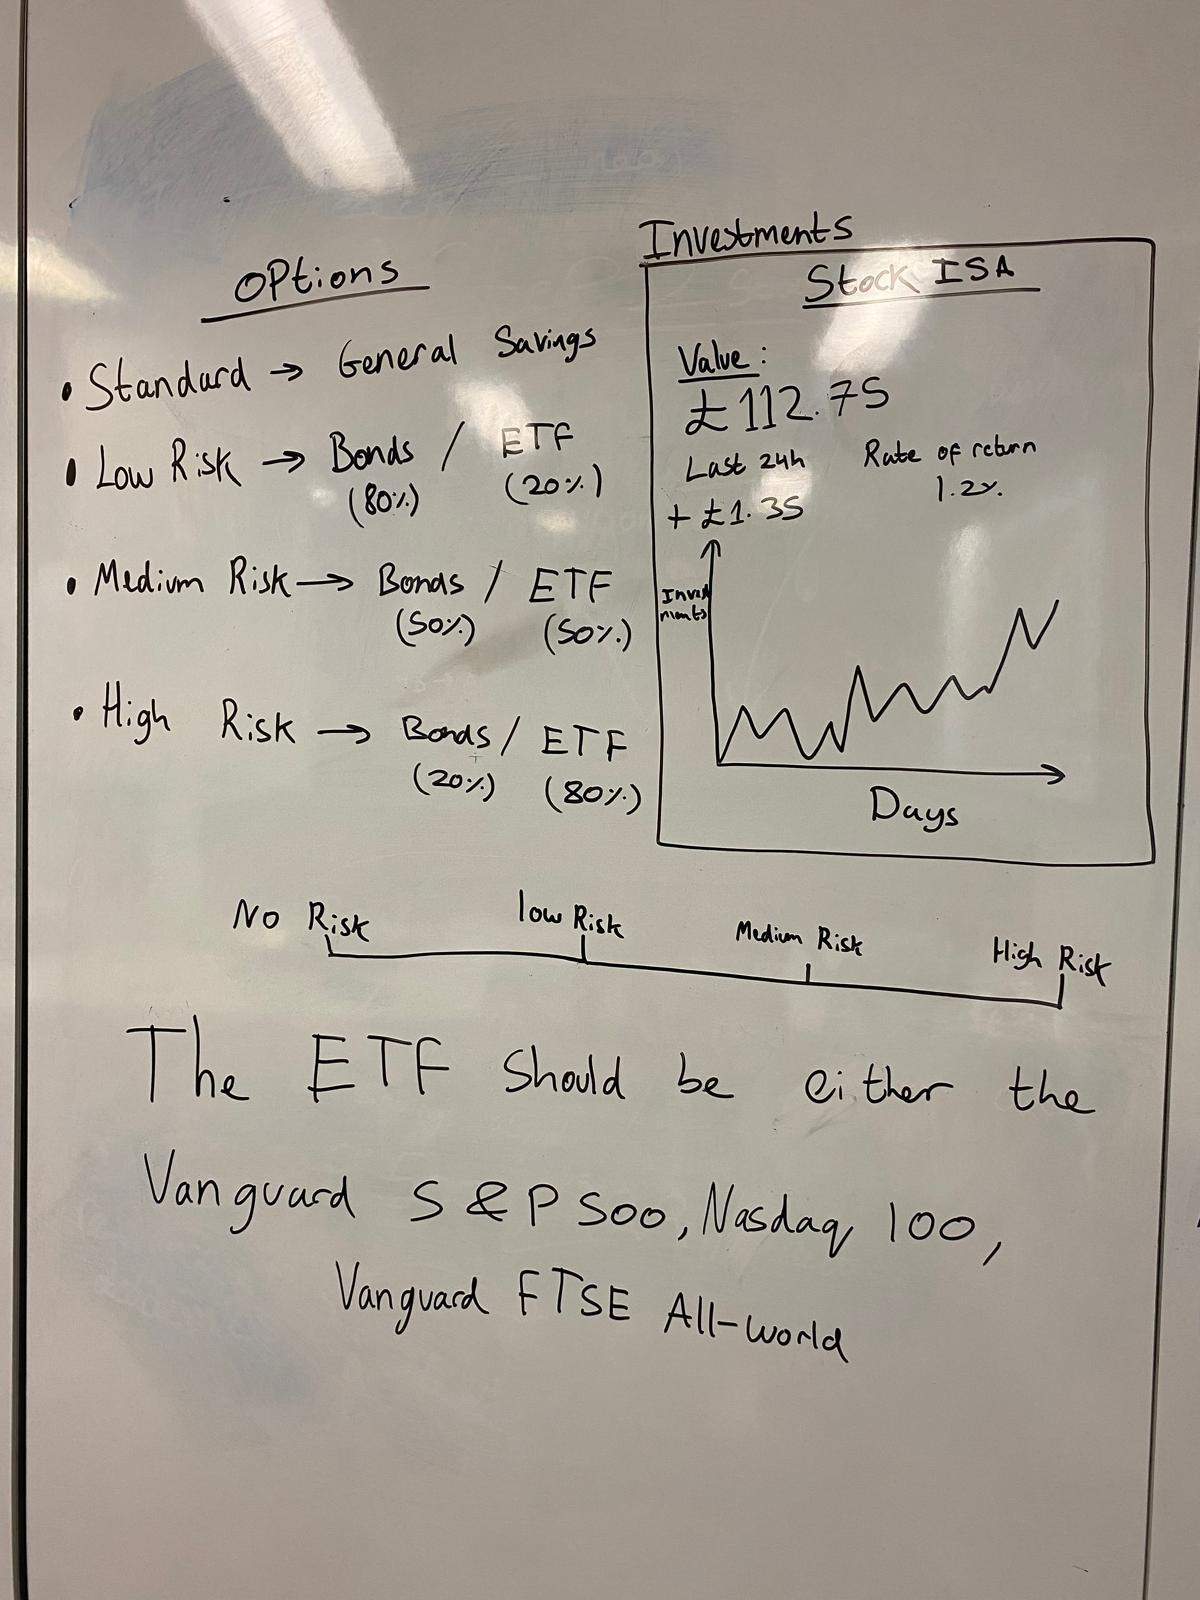 Options
• Standard → General Savings
• Low Risk → Bonds / ETF
(80%) (20%)
• Medium Risk → Bonds / ETF
(50%) (50%)
• High Risk → Bonds / ETF
(20%) (80%)
Investments
Stock ISA
Value:
£112.75
Last 24h
+ £1.35
Rate of return
1.2%
Invest
ments
Days
No Risk
low Risk
Medium Risk
High Risk
The ETF should be either the
Vanguard S&P 500, Nasdaq 100,
Vanguard FTSE All-world